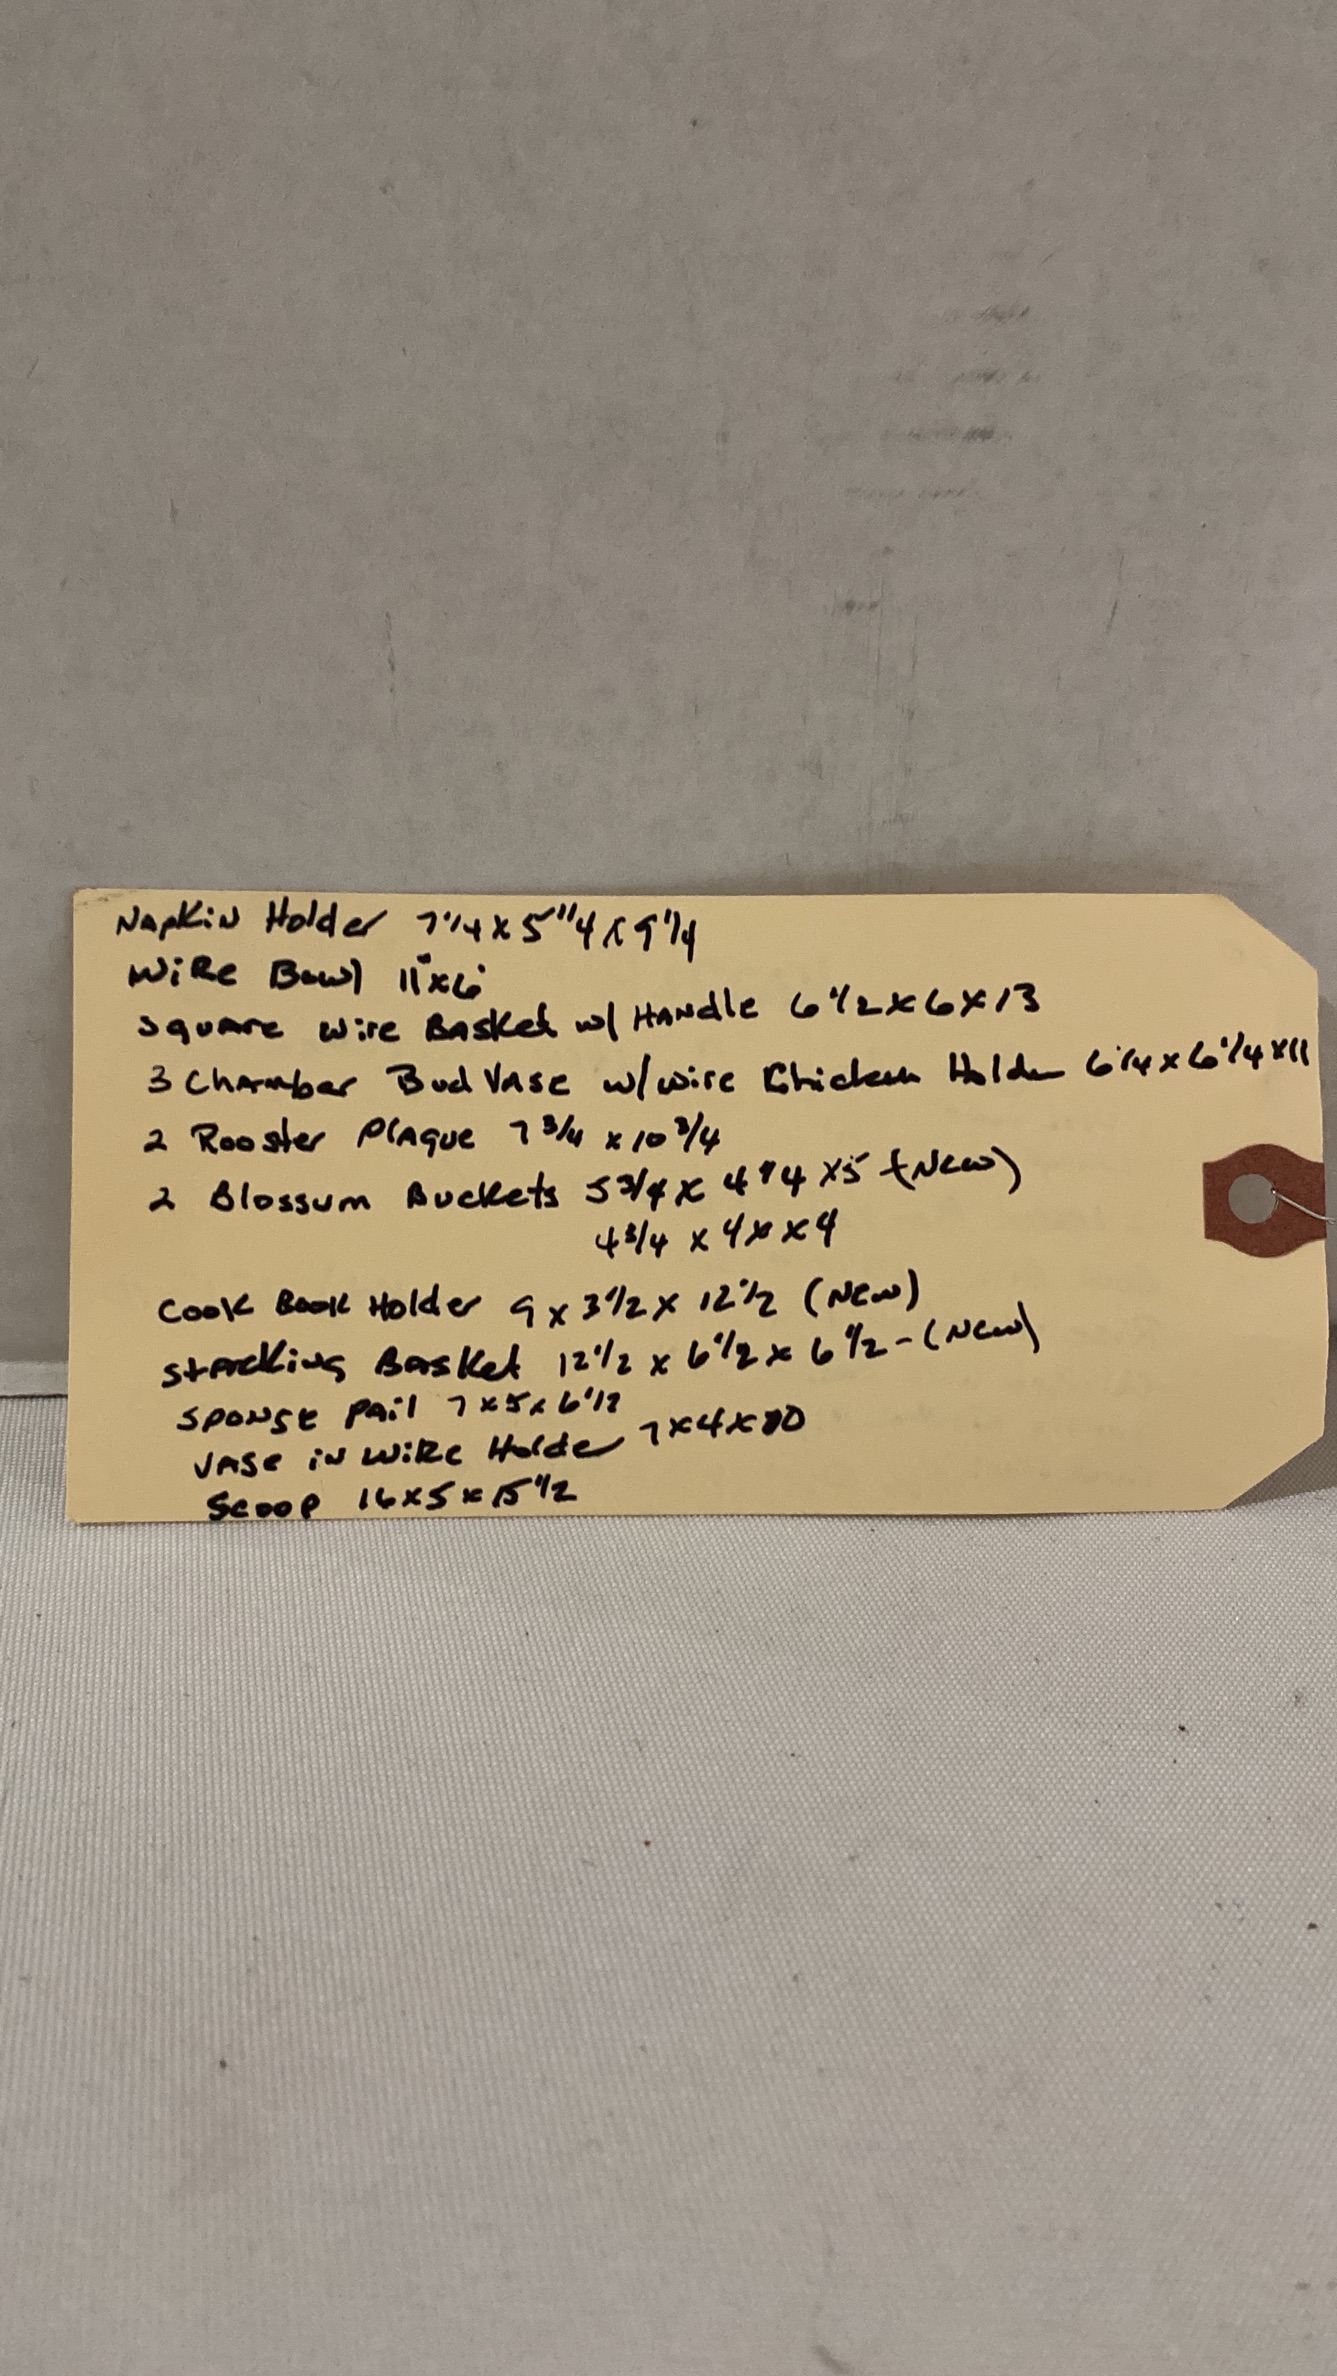 Napkin Holder 7 1/4 x 5 1/4 x 9 1/4
Wire Bowl 11" x 6"
Square Wire Basket w/ Handle 6 1/2 x 6 x 13
3 Chamber Bud Vase w/ wire Chicken Holder 6 1/4 x 6 1/4 x 11
2 Rooster Plaque 7 3/4 x 10 3/4
2 Blossum Buckets 5 3/4 x 4 1/4 x 5 (New)
4 3/4 x 4 x x 4
Cook Book Holder 9 x 3 1/2 x 12 1/2 (New)
Stacking Basket 12 1/2 x 6 1/2 x 6 1/2 - (New)
Sponge Pail 7 x 5 x 6 1/2
Vase in Wire Holder 7 x 4 x 10
Scoop 16 x 5 x 15 1/2